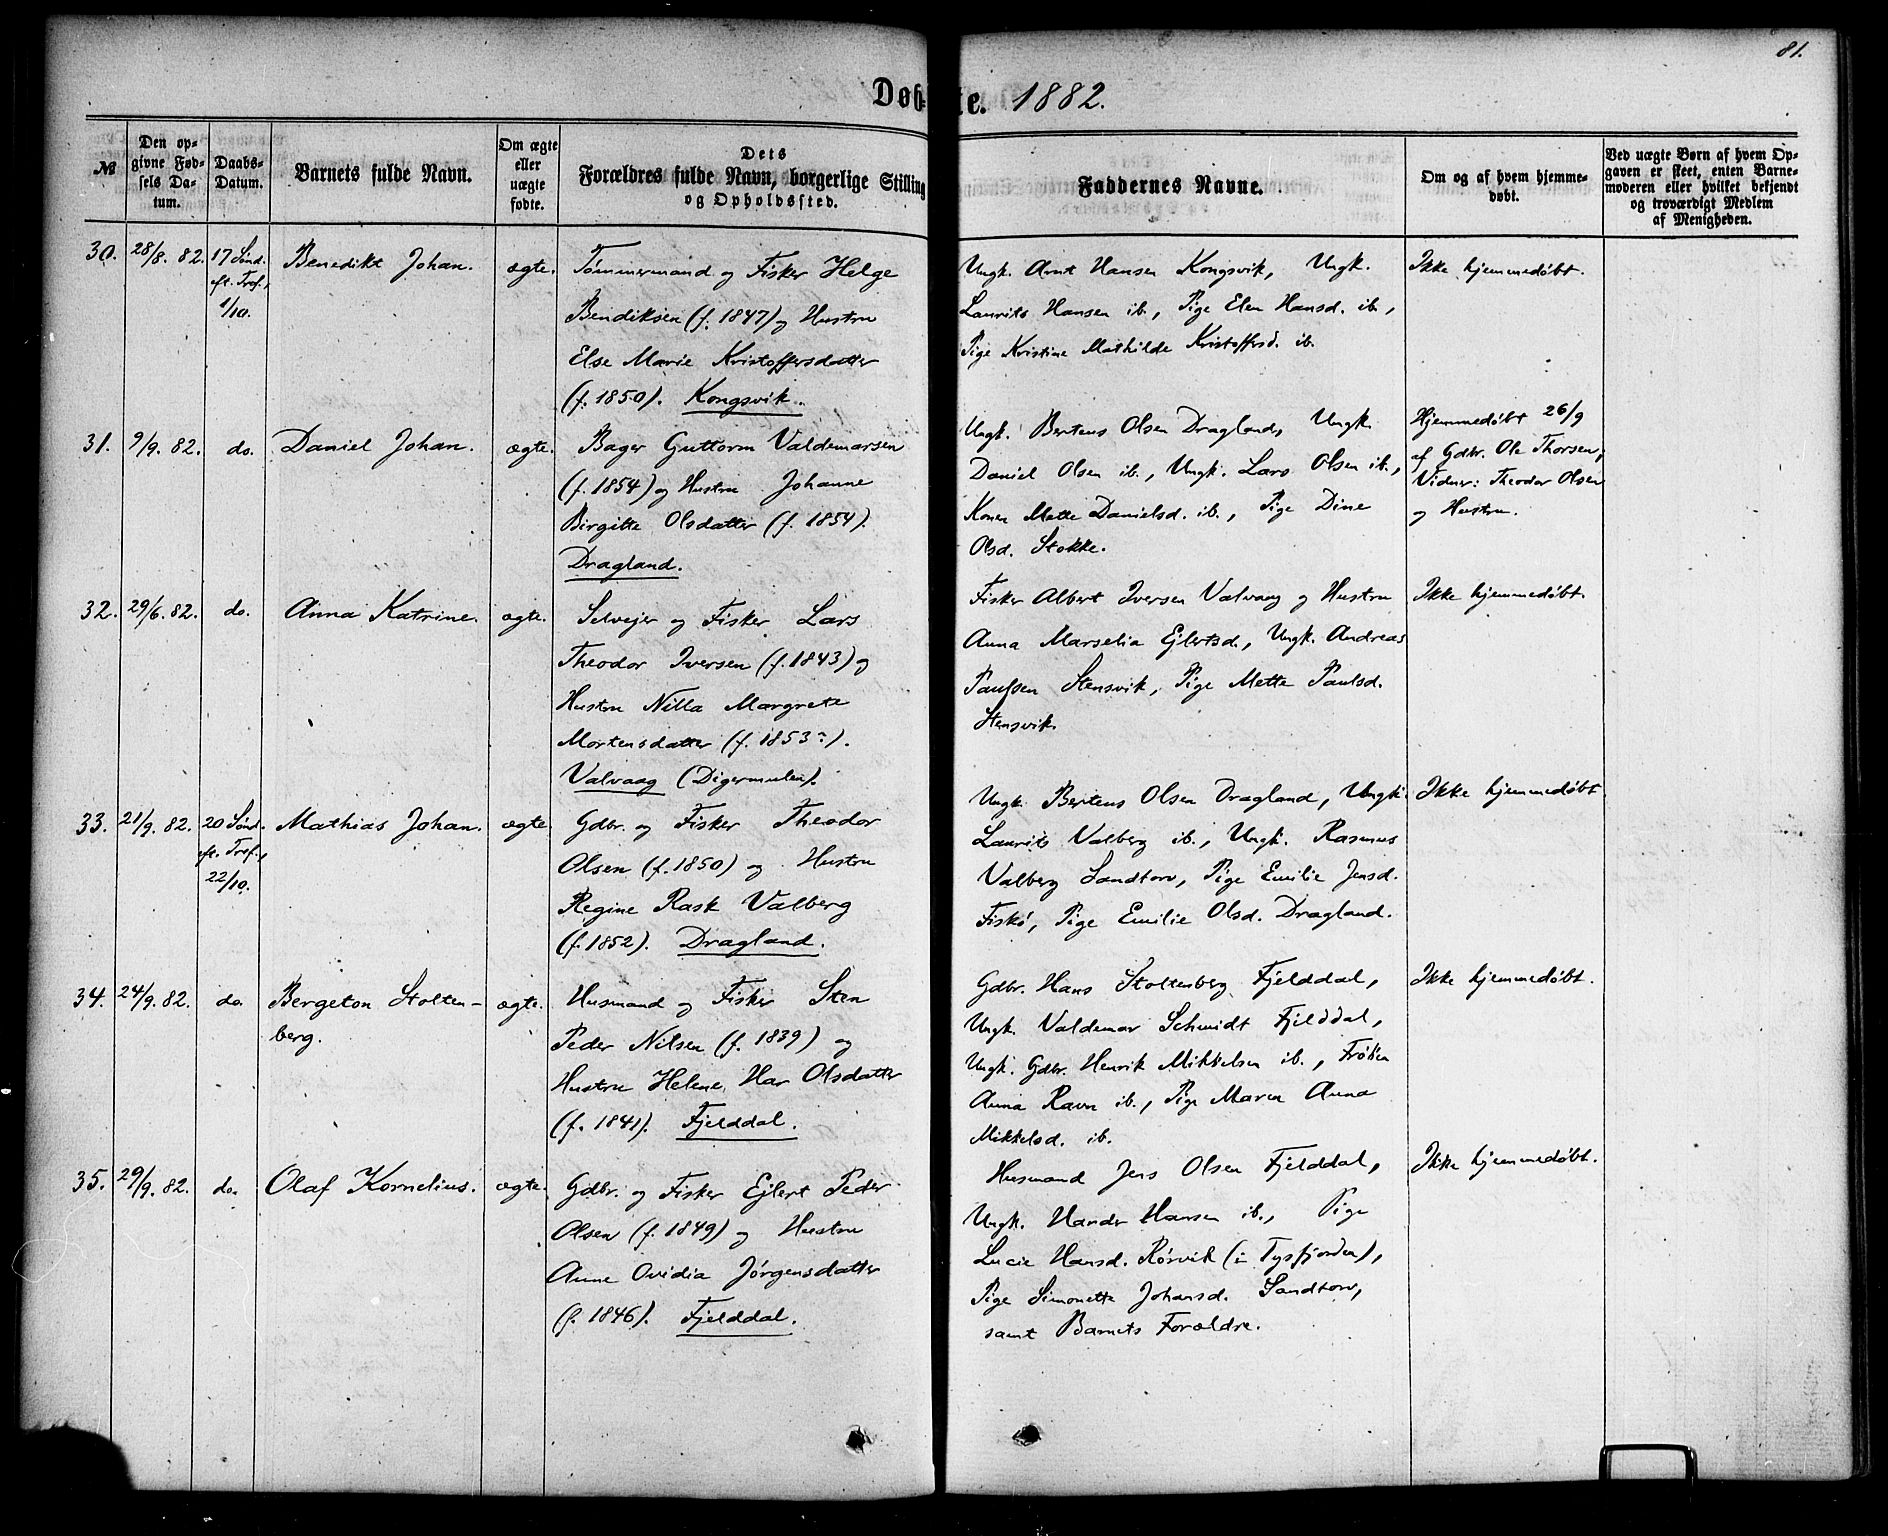 81.
Døbte. 1882.
№
Den opgivne Fødsels Datum.
Daabs-Datum.
Barnets fulde Navn.
Om ægte eller uægte fødte.
Dets Forældres fulde Navn, borgerlige Stilling og Opholdssted.
Faddernes Navne.
Om og af hvem hjemmedøbt.
Ved uægte Børn af hvem Opgaven er skeet, enten Barnemoderen eller hvilket bekjendt og troværdigt Medlem af Menigheden.
30. 28/8. 82. 17 Sønd. eft. Tref., 1/10. Benedikt Johan. ægte.
Tømmermand og Fisker Helge
Bendiksen (f. 1847) og Hustru
Else Marie Kristoffersdatter
(f. 1850). Kongsvik.
Ungk. Arnt Hansen Kongsvik, Ungk.
Laurits Hansen ib., Pige Elen Hansd. ib.,
Pige Kristine Mathilde Kristoffersd. ib.
Ikke hjemmedøbt.
31. 9/9. 82. do. Daniel Johan. ægte.
Bager Guttorm Valdemarsen
(f. 1854) og Hustru Johanne
Birgitte Olsdatter (f. 1854).
Dragland.
Ungk. Bertens Olsen Dragland, Ungk.
Daniel Olsen ib., Ungk. Lars Olsen ib.,
Konen Mette Danielsd. ib., Pige Dine
Olsd. Stokke.
Hjemmedøbt 26/9
af Gdbr. Ole Thorsen;
Vidner: Theodor Olsen
og Hustru.
32. 29/6. 82. do. Anna Katrine. ægte.
Selvejer og Fisker Lars
Theodor Iversen (f. 1843) og
Hustru Nilla Margrete
Mortensdatter (f. 1853?).
Valvaag (Digermulen).
Fisker Albert Iversen Valvaag og Hustru
Anna Marselia Ejlertsd., Ungk. Andreas
Paulsen Stensvik, Pige Mette Paulsd.
Stensvik.
Ikke hjemmedøbt.
33. 21/9. 82. 20 Sønd. eft. Tref., 22/10. Mathias Johan. ægte.
Gdbr. og Fisker Theodor
Olsen (f. 1850) og Hustru
Regine Rask Valberg
(f. 1852). Dragland.
Ungk. Bertens Olsen Dragland, Ungk.
Laurits Valberg ib., Ungk. Rasmus
Valberg Sandtorv, Pige Emilie Jensd.
Fiskø, Pige Emilie Olsd. Dragland.
Ikke hjemmedøbt.
34. 24/9. 82. do. Bergeton Stolten-
berg. ægte.
Husmand og Fisker Sten
Peder Nilsen (f. 1839) og
Hustru Helene Har Olsdatter
(f. 1841). Fjelddal.
Gdbr. Hans Stoltenberg Fjelddal,
Ungk. Valdemar Schmidt Fjelddal,
Ungk. Gdbr. Henrik Mikkelsen ib., Frøken
Anna Ravn ib., Pige Maren Anna
Mikkelsd. ib.
Ikke hjemmedøbt.
35. 29/9. 82. do. Olaf Kornelius. ægte.
Gdbr. og Fisker Ejlert Peder
Olsen (f. 1849) og Hustru
Anne Ovidia Jørgensdatter
(f. 1846). Fjelddal.
Husmand Jens Olsen Fjelddal,
Ungk. Hansen ib., Pige
Lucie Hansd. Rørvik (i Tysfjorden),
Pige Simonette Johansd. Sandtorv,
samt Barnets Forældre.
Ikke hjemmedøbt.